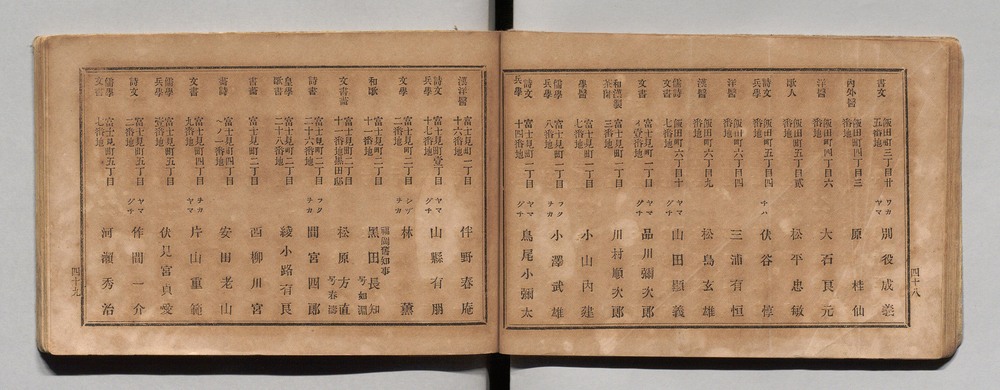 書文 飯田町三丁目廿五番地 ワカヤマ 別役成義
内外醫 飯田町四丁目三番地 原桂仙
洋醫 飯田町四丁目六番地 大石良元
歌人 飯田町五丁目貳番地 松平忠敏
詩文兵學 飯田町五丁目四番地 チハ 伏谷惇
洋醫 飯田町六丁目四番地 三浦有恒
漢醫 飯田町六丁目九番地 松島玄雄
儒詩文書 飯田町六丁目十七番地 ヤマグチ 山田顯義
文書 富士見町一丁目イ壹番地 品川彌次郎
和漢製茶術 富士見町一丁目三番地 川村順次郎
學醫 富士見町一丁目七番地 小山內建
儒學兵學 富士見町一丁目八番地 フクヲカ 小澤武雄
詩文兵學 富士見町一丁目十四番地 ヤマグチ 鳥尾小彌太
四十八
漢洋醫 富士見町一丁目十六番地 伴野春庵
詩文兵學 富士見町壹丁目十七番地 ヤマグチ 山縣有朋
文學 富士見町二丁目二番地 シヅヲカ 林薫
和歌 富士見町二丁目十一番地 福岡舊知事 黑田長知 号如淵
文書畵 富士見町二丁目十一番地黑田邸 松原方直 号春濤
詩書 富士見町二丁目二十六番地 フクヲカ 間宮四郎
皇學歌書 富士見町二丁目二十八番地 綾小路有良
書畵 富士見町二丁目 西柳川宮
畵詩 富士見町四丁目ヘノ一番地 安田老山
文書 富士見町四丁目九番地 ヲカヤマ 片山重範
儒學兵學 富士見町五丁目壹番地 伏見宮貞愛
詩文 富士見町五丁目二番地 ヤマグチ 作間一介
儒學文書 富士見町五丁目七番地 河瀬秀治
四十九